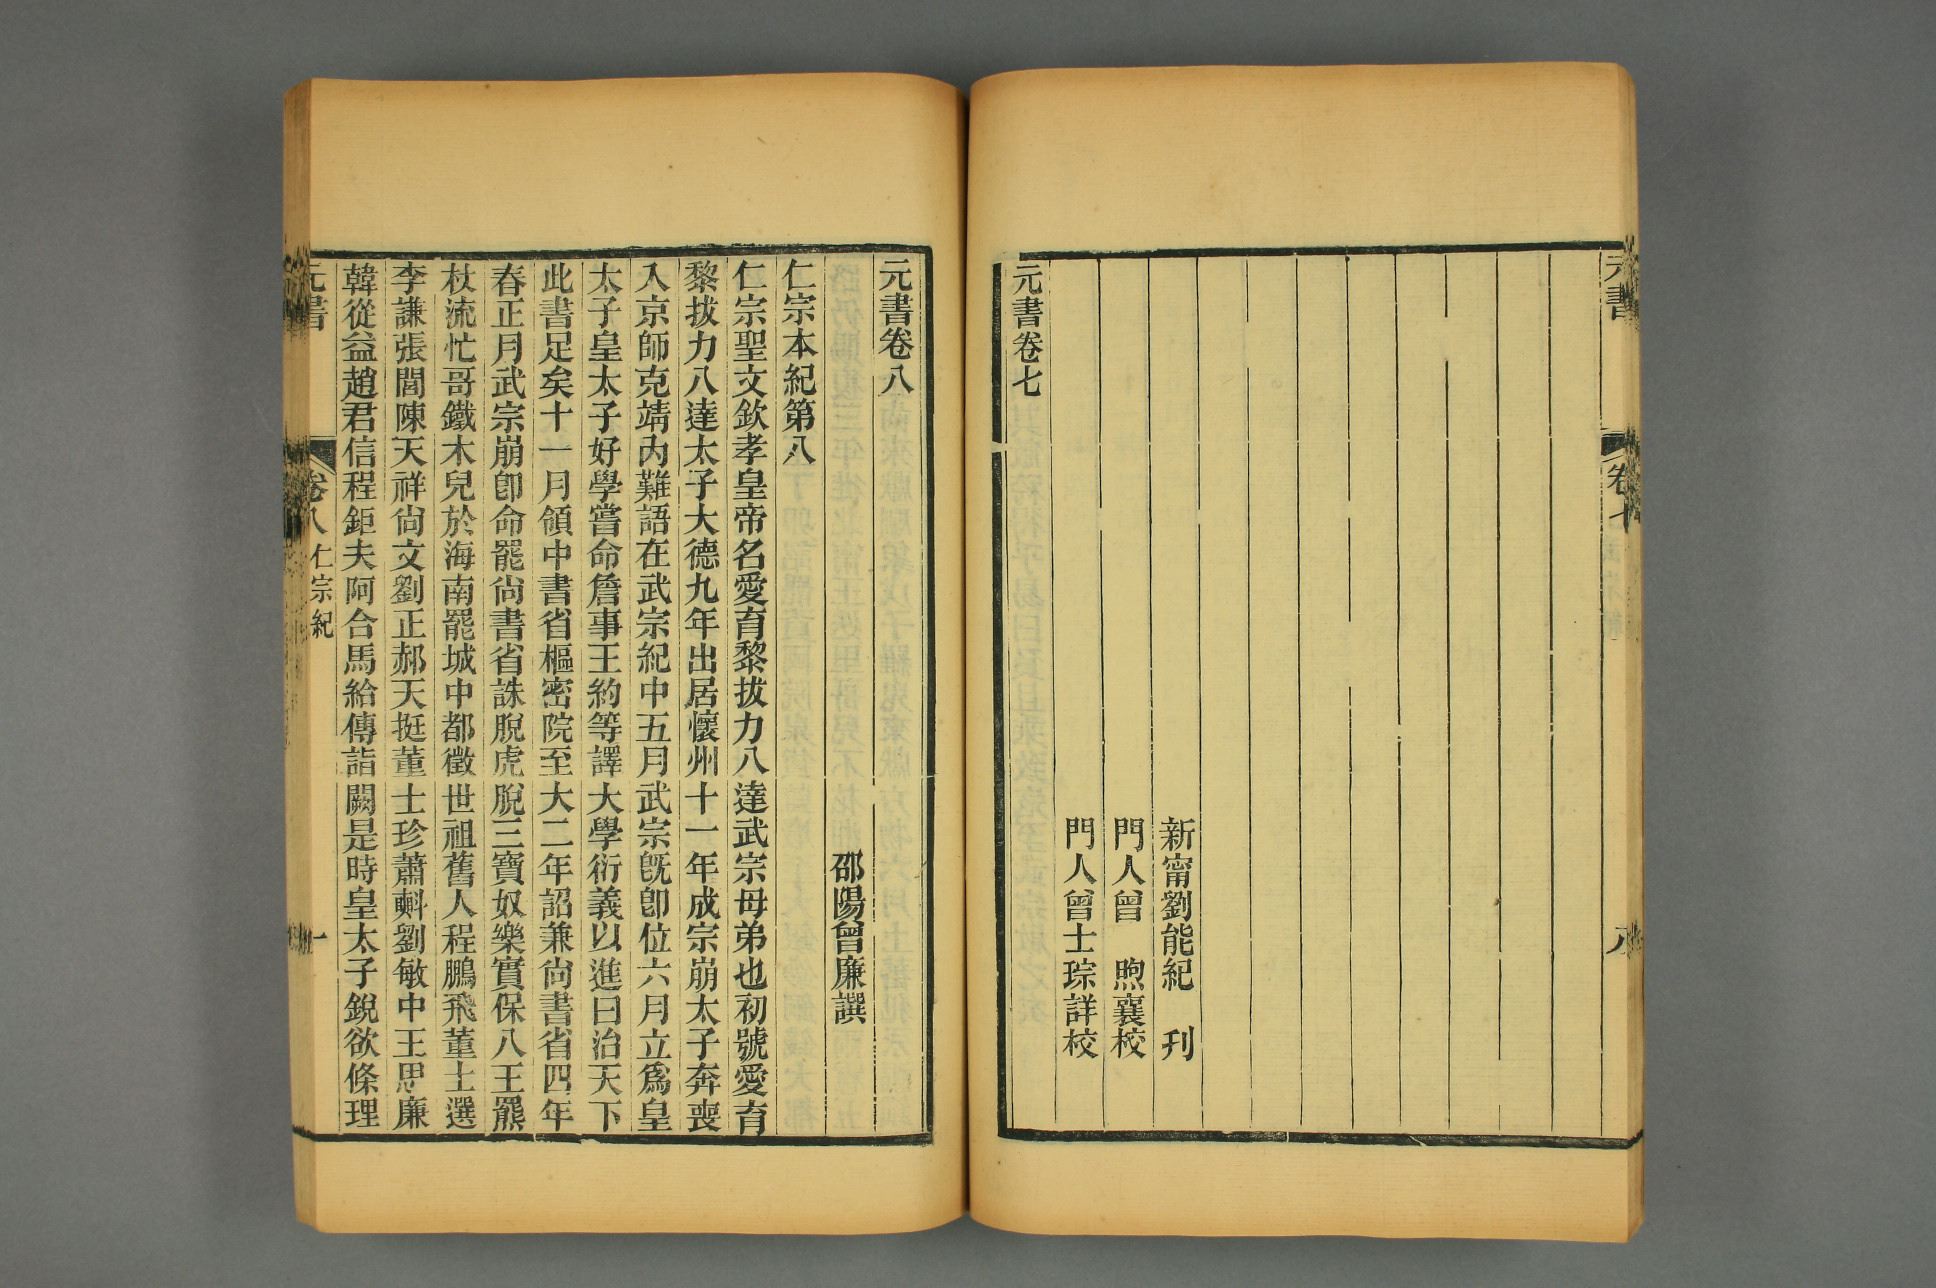 元書
卷七
八
新甯劉能紀　刊
門人曾　煦襄校
門人曾士琮詳校
元書卷七
元書卷八
邵陽曾廉譔
仁宗本紀第八
仁宗聖文欽孝皇帝名愛育黎拔力八達武宗母弟也初號愛育
黎拔力八達太子大德九年出居懷州十一年成宗崩太子奔喪
入京師克靖內難語在武宗紀中五月武宗旣卽位六月立爲皇
太子皇太子好學嘗命詹事王約等譯大學衍義以進曰治天下
此書足矣十一月領中書省樞密院至大二年詔兼尙書省四年
春正月武宗崩卽命罷尙書省誅脫虎脫三寶奴樂實保八王羆
杖流忙哥鐵木兒於海南罷城中都徵世祖舊人程鵬飛董士選
李謙張閭陳天祥尙文劉正郝天挺董士珍蕭𣂏劉敏中王思廉
韓從益趙君信程鉅夫阿合馬給傳詣闕是時皇太子銳欲條理
元書
卷八　仁宗紀
一